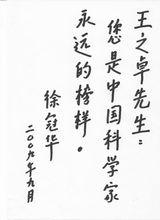 王之卓先生：
您是中国科学家
永远的榜样。
徐冠华
二00九年九月